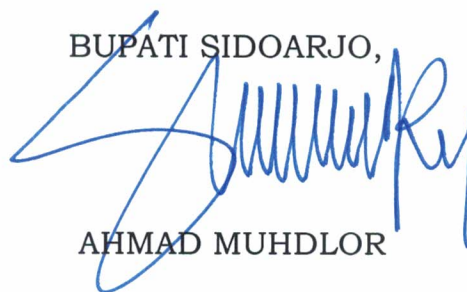 BUPATI SIDOARJO,
AHMAD MUHDLOR